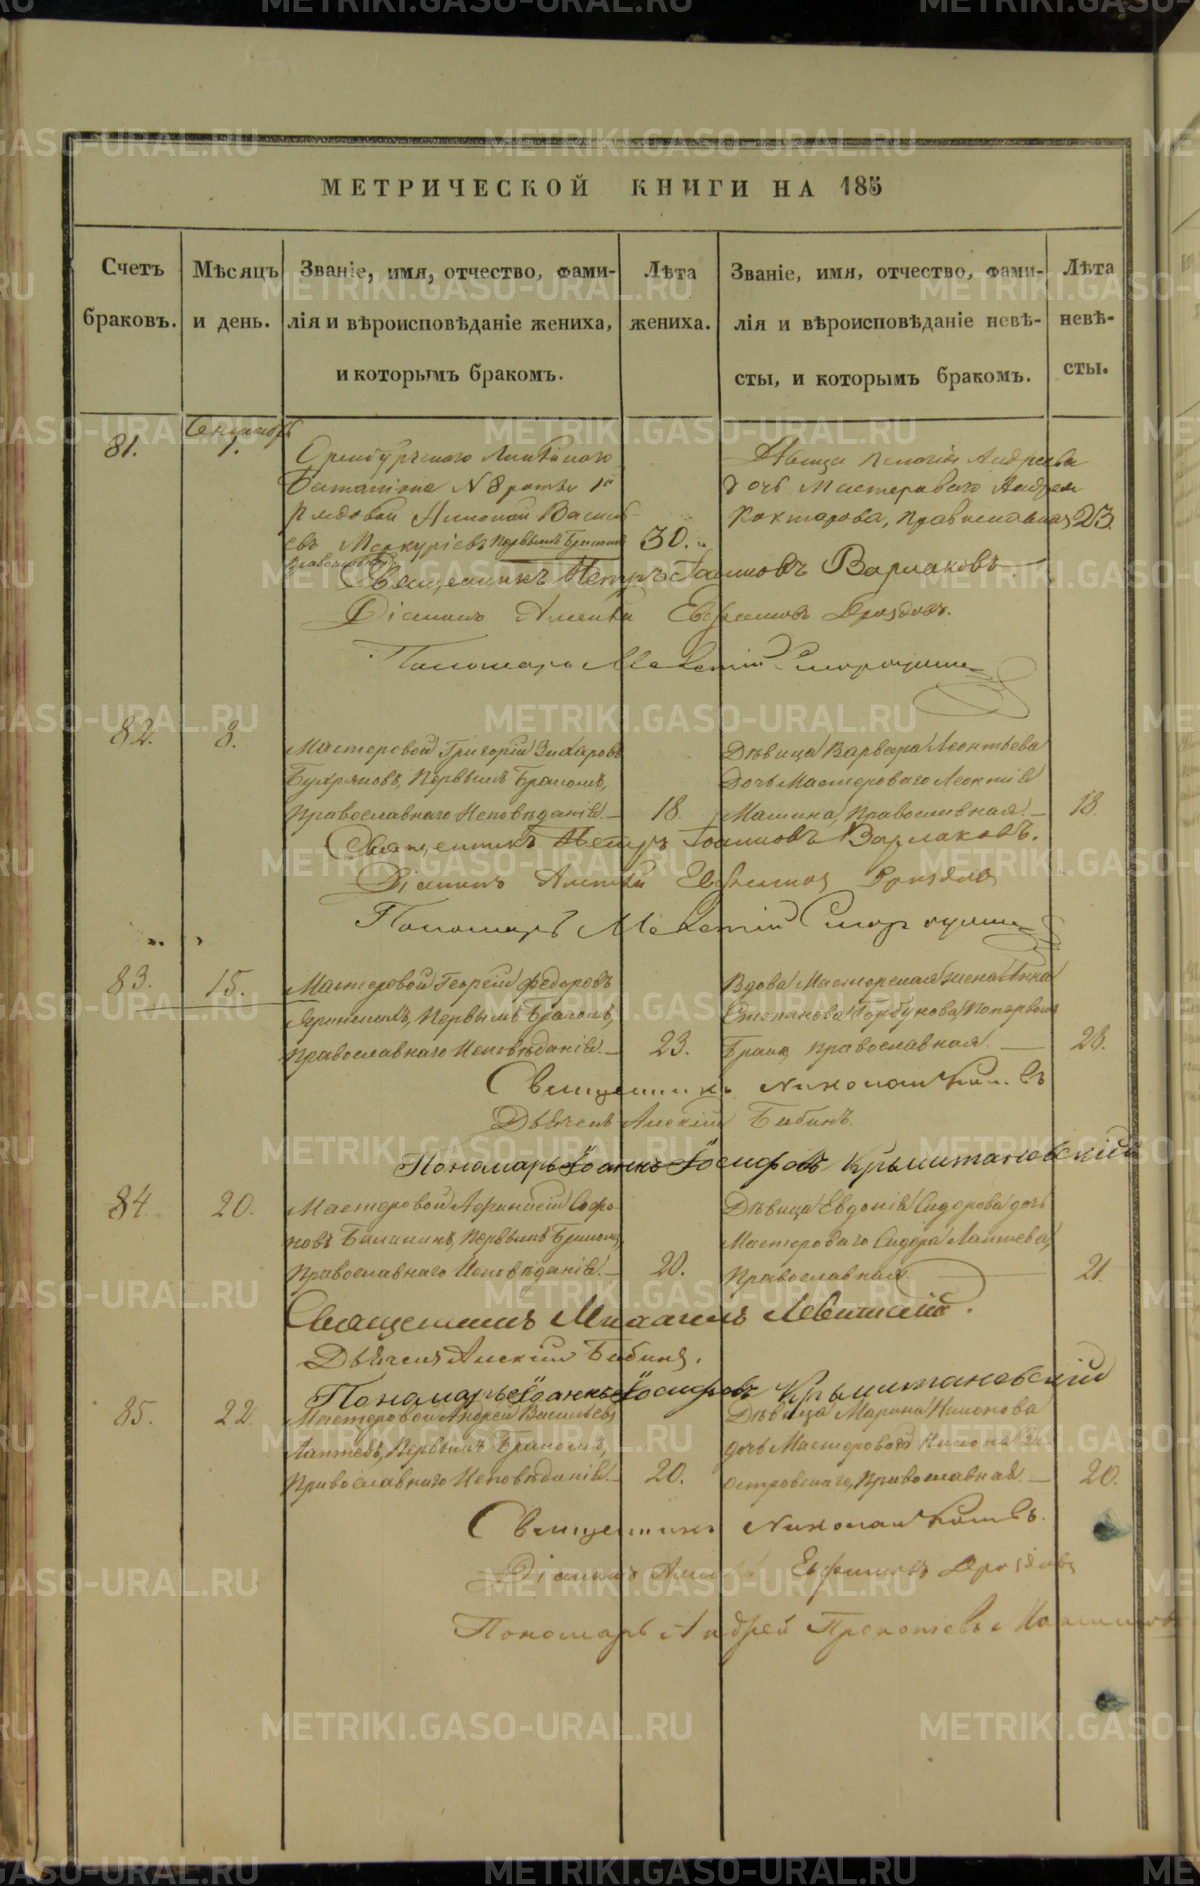 МЕТРИЧЕСКОЙ КНИГИ НА 185
Счетъ браковъ.
Мѣсяцъ и день.
Званіе, имя, отчество, фами-
лія и вѣроисповѣданіе жениха,
и которымъ бракомъ.
Лѣта
жениха.
Званіе, имя, отчество, фами-
лія и вѣроисповѣданіе невѣ-
сты, и которымъ бракомъ.
Лѣта
невѣ-
сты.
81.
1.
Оренбургскаго Линѣйнаго
Баталіона N 8 роты 1й
рядовой Василь-
евъ Меркурьевъ Первымъ Бракомъ
30.
Дѣвица Андреева
дочь Мастероваго Андрея
Православная 23
Священникъ Петръ Іоанновъ Варлаковъ
Діаконъ Алексѣй Евфимовъ Дроздовъ.
Пономарь
82.
8.
Мастеровой Григорій Захаровъ
Первымъ Бракомъ,
Православнаго Исповѣданія.
18.
Дѣвица Варвара Леонтьева
Дочь Мастероваго Леонтія
Машина, Православная.
18.
Священникъ Петръ Іоанновъ Варлаковъ.
Діаконъ Алексѣй Евфимовъ Дроздовъ
Пономарь
83.
15.
Мастеровой Георгій Федоровъ
Первымъ Бракомъ,
Православнаго Исповѣданія.
23.
Вдова Мастерская жена Анна
Степанова Горбунова, По первомъ
Бракѣ, православная.
28.
Священникъ Николай
Дьячекъ Алексій Бабинъ.
Пономарь Іоаннъ Іосифовъ Крыжтановскій
84
20.
Мастеровой Афанасій Софро
новъ Балакинъ, Первымъ Бракомъ,
Православнаго Исповѣданія.
20.
Дѣвица Евдокія Сидорова дочь
Мастероваго Сидора Лаптева,
Православная
21.
Священникъ Михаилъ Левитскій.
Дьячекъ Алексій Бабинъ.
Пономарь Іоаннъ Іосифовъ Крыжтановскій
85.
22.
Мастеровой Андрей Васильевъ
Лаптевъ, Первымъ Бракомъ,
Православнаго Исповѣданія.
20.
Дѣвица Марина Никонова
дочь Мастероваго Никона За-
островскаго, Православная.
20.
Священникъ Николай
Діаконъ Алексѣй Евфимовъ Дроздовъ
Пономарь Андрей Прокопьевъ
METRIKI.GASO-URAL.RU